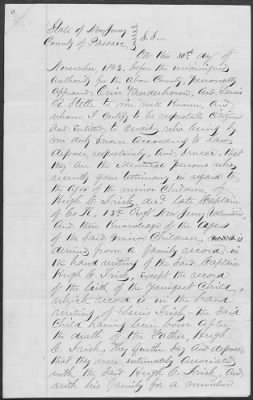 State of New Jersey
County of Passaic } S.S.
On this 30th day of
November 1863, before the undersigned
Authority for the above County, personally
Appeared Eric Vanderhoven, And Lewis
A Stelle to me well known, and
whom I certify to be reputable Citizens
And entitled to credit, who being by
me duly sworn According to law,
deposes respectively, and swears, that
they are the identical persons who
recently gave testimony in regard to
the Ages of the minor Children of
Hugh C. Irish, dec'd late Captain
of Co. K. 13th Regt New Jersey Volunteers,
And their Knowledge of the Ages
of the Said minor Children, is
derived from a family record, in
the hand writing of the Said Captain
Hugh C. Irish, except the record
of the birth of the Youngest Child,
which record is in the hand
writing of Lewis Irish - the Said
Child having been born after
the death of the Father, Hugh
C. Irish. They further say and depose,
that they were intimately Associated
with the Said Hugh C. Irish, and
with his family for a number